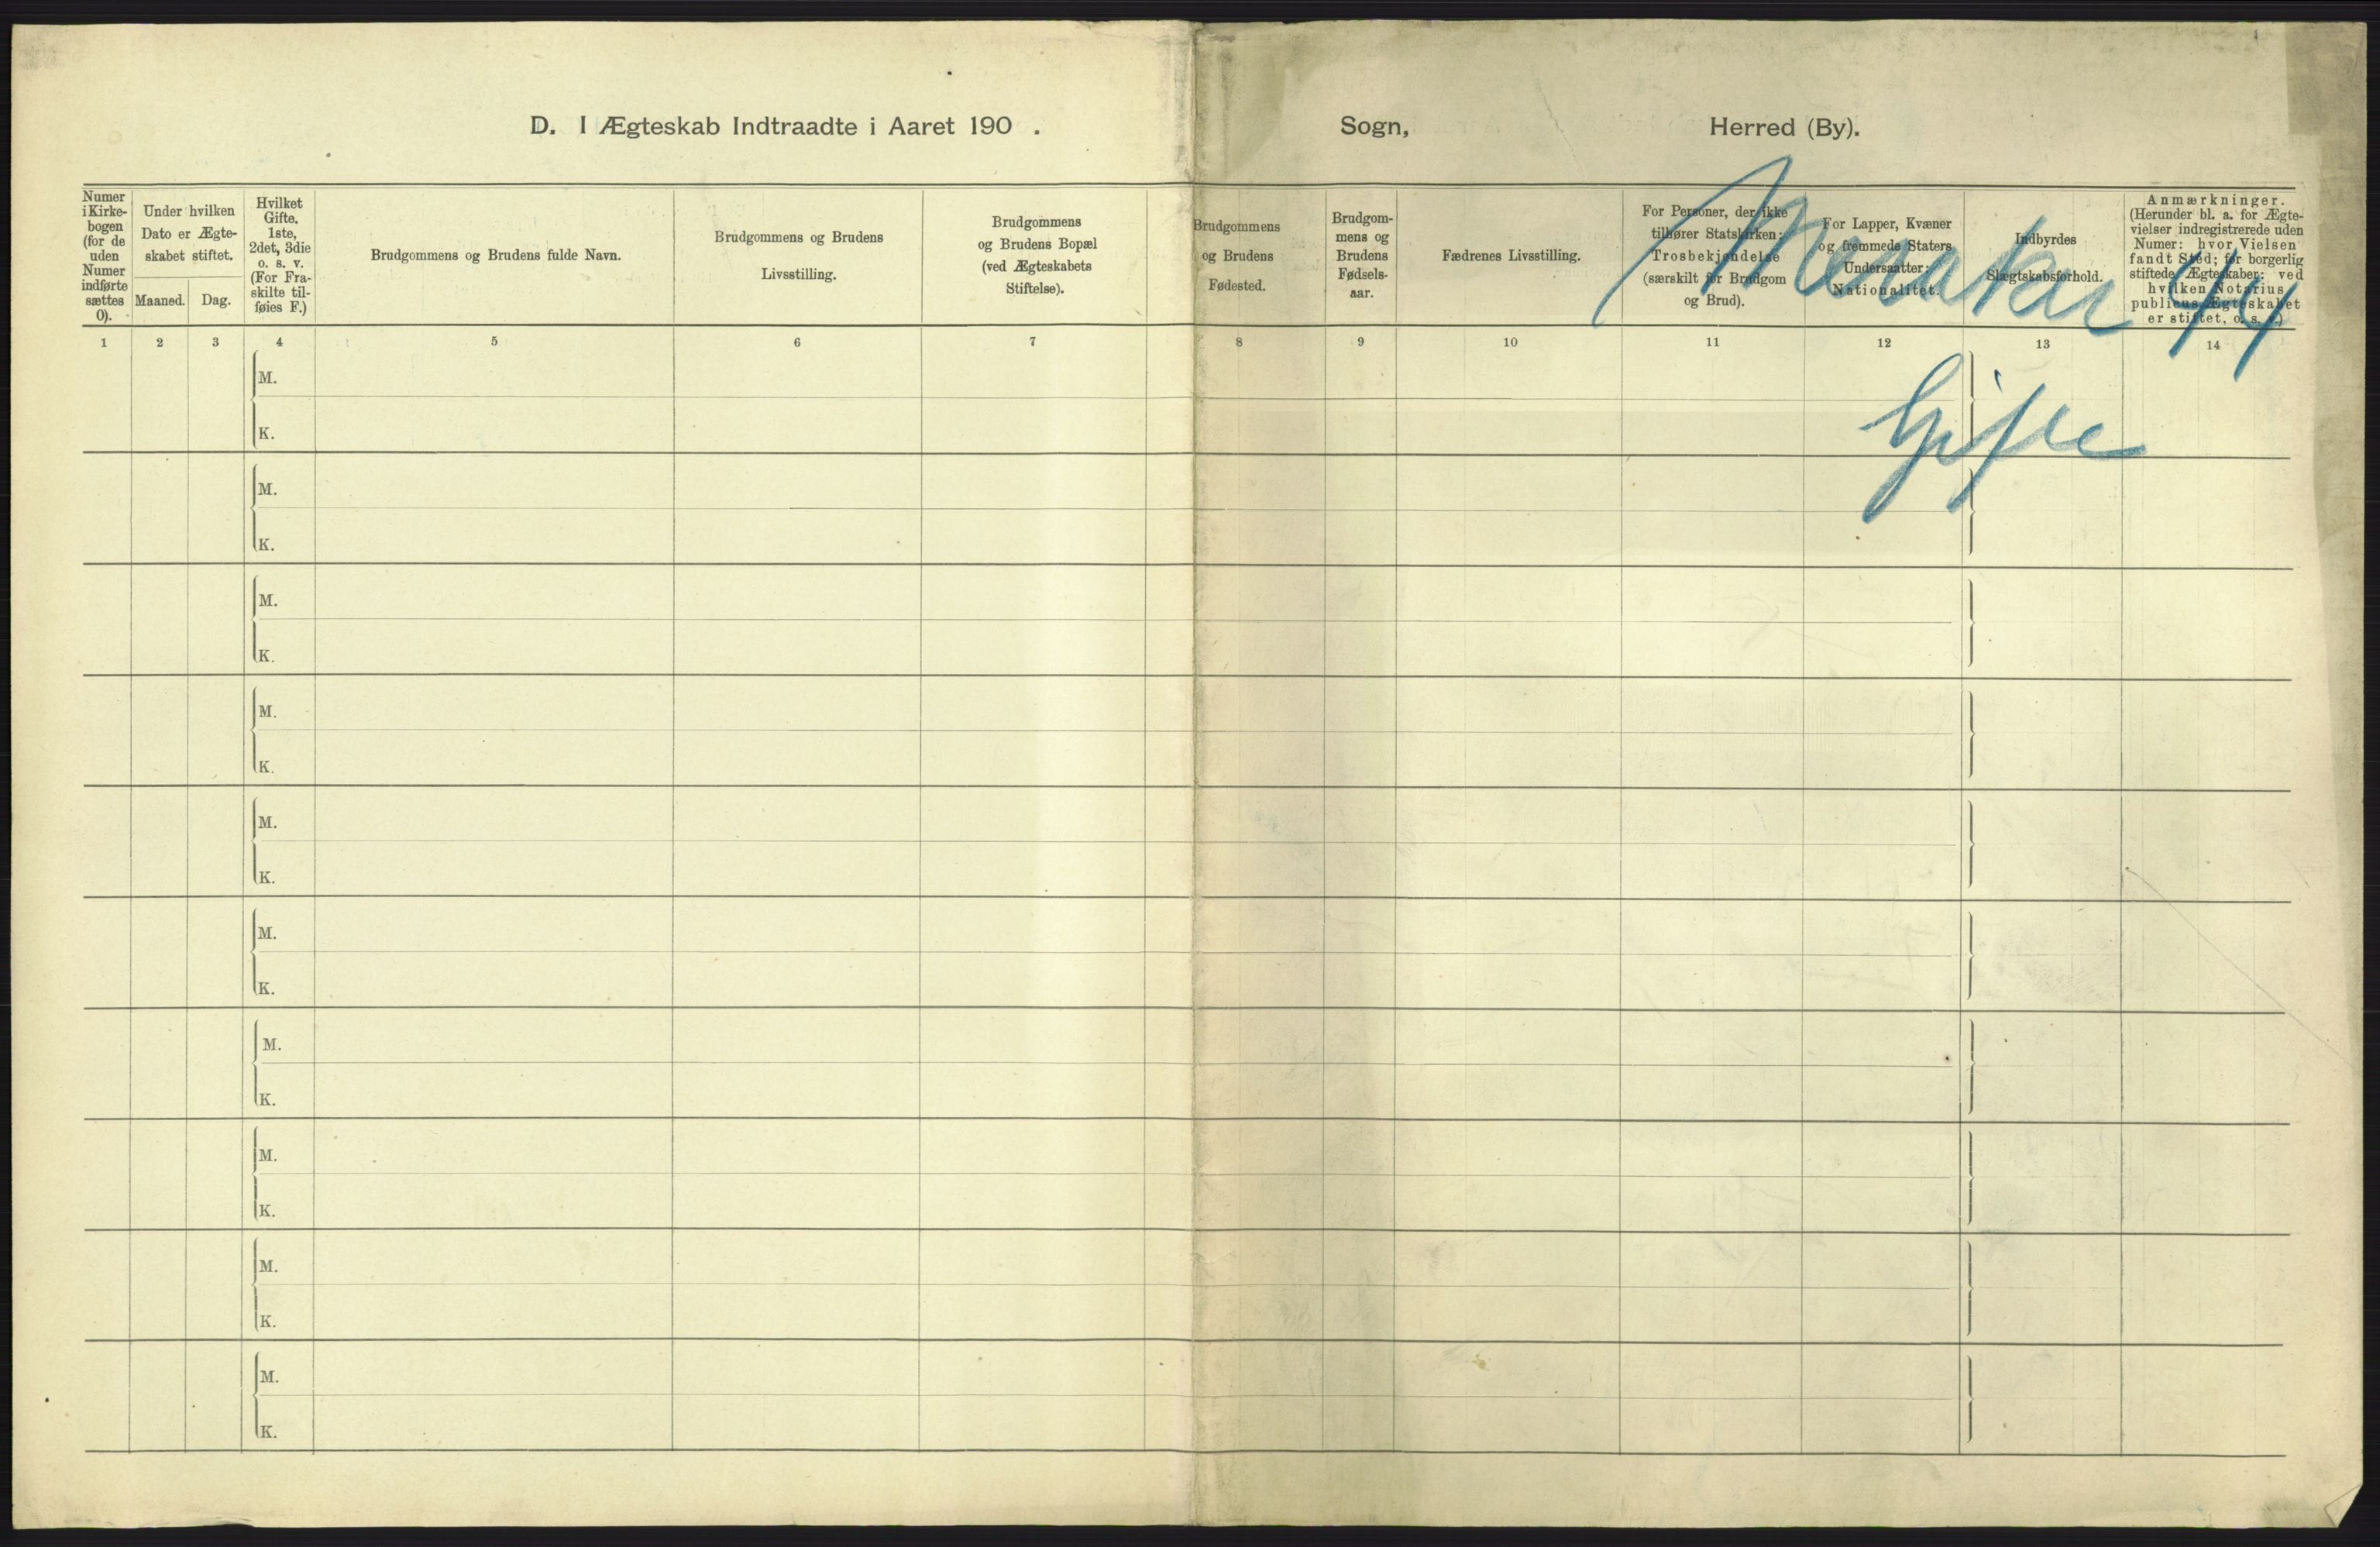 D. I Ægteskab Indtraadte i Aaret 190 . Sogn, Herred (By).
Numer
i Kirke-
bogen
(for de
uden
Numer
indførte
sættes
0).
Under hvilken
Dato er Ægte-
skabet stiftet.
Maaned. Dag.
Hvilket
Gifte,
1ste,
2det, 3die
o. s. v.
(For Fra-
skilte til-
føies F.)
Brudgommens og Brudens fulde Navn.
Brudgommens og Brudens
Livsstilling.
Brudgommens
og Brudens Bopæl
(ved Ægteskabets
Stiftelse).
Brudgommens
og Brudens
Fødested.
Brudgom-
mens og
Brudens
Fødsels-
aar.
Fædrenes Livsstilling.
For Personer, der ikke
tilhører Statskirken:
Trosbekjendelse
(særskilt før Brudgom
og Brud).
For Lapper, Kvæner
og fremmede Staters
Undersaatter:
Nationalitet.
Indbyrdes
Slægtskabsforhold.
Anmærkninger.
(Herunder bl. a. for Ægte-
vielser indregistrerede uden
Numer: hvor Vielsen
fandt Sted; før borgerlig
stiftede Ægteskaber: ved
hvilken Notarius
publicus Ægteskabet
er stiftet, o. s. v.)
Meraker 44
1 2 3 4 5 6 7 8 9 10 11 12 13 14
Gifte
M.
K.
M.
K.
M.
K.
M.
K.
M.
K.
M.
K.
M.
K.
M.
K.
M.
K.
M.
K.